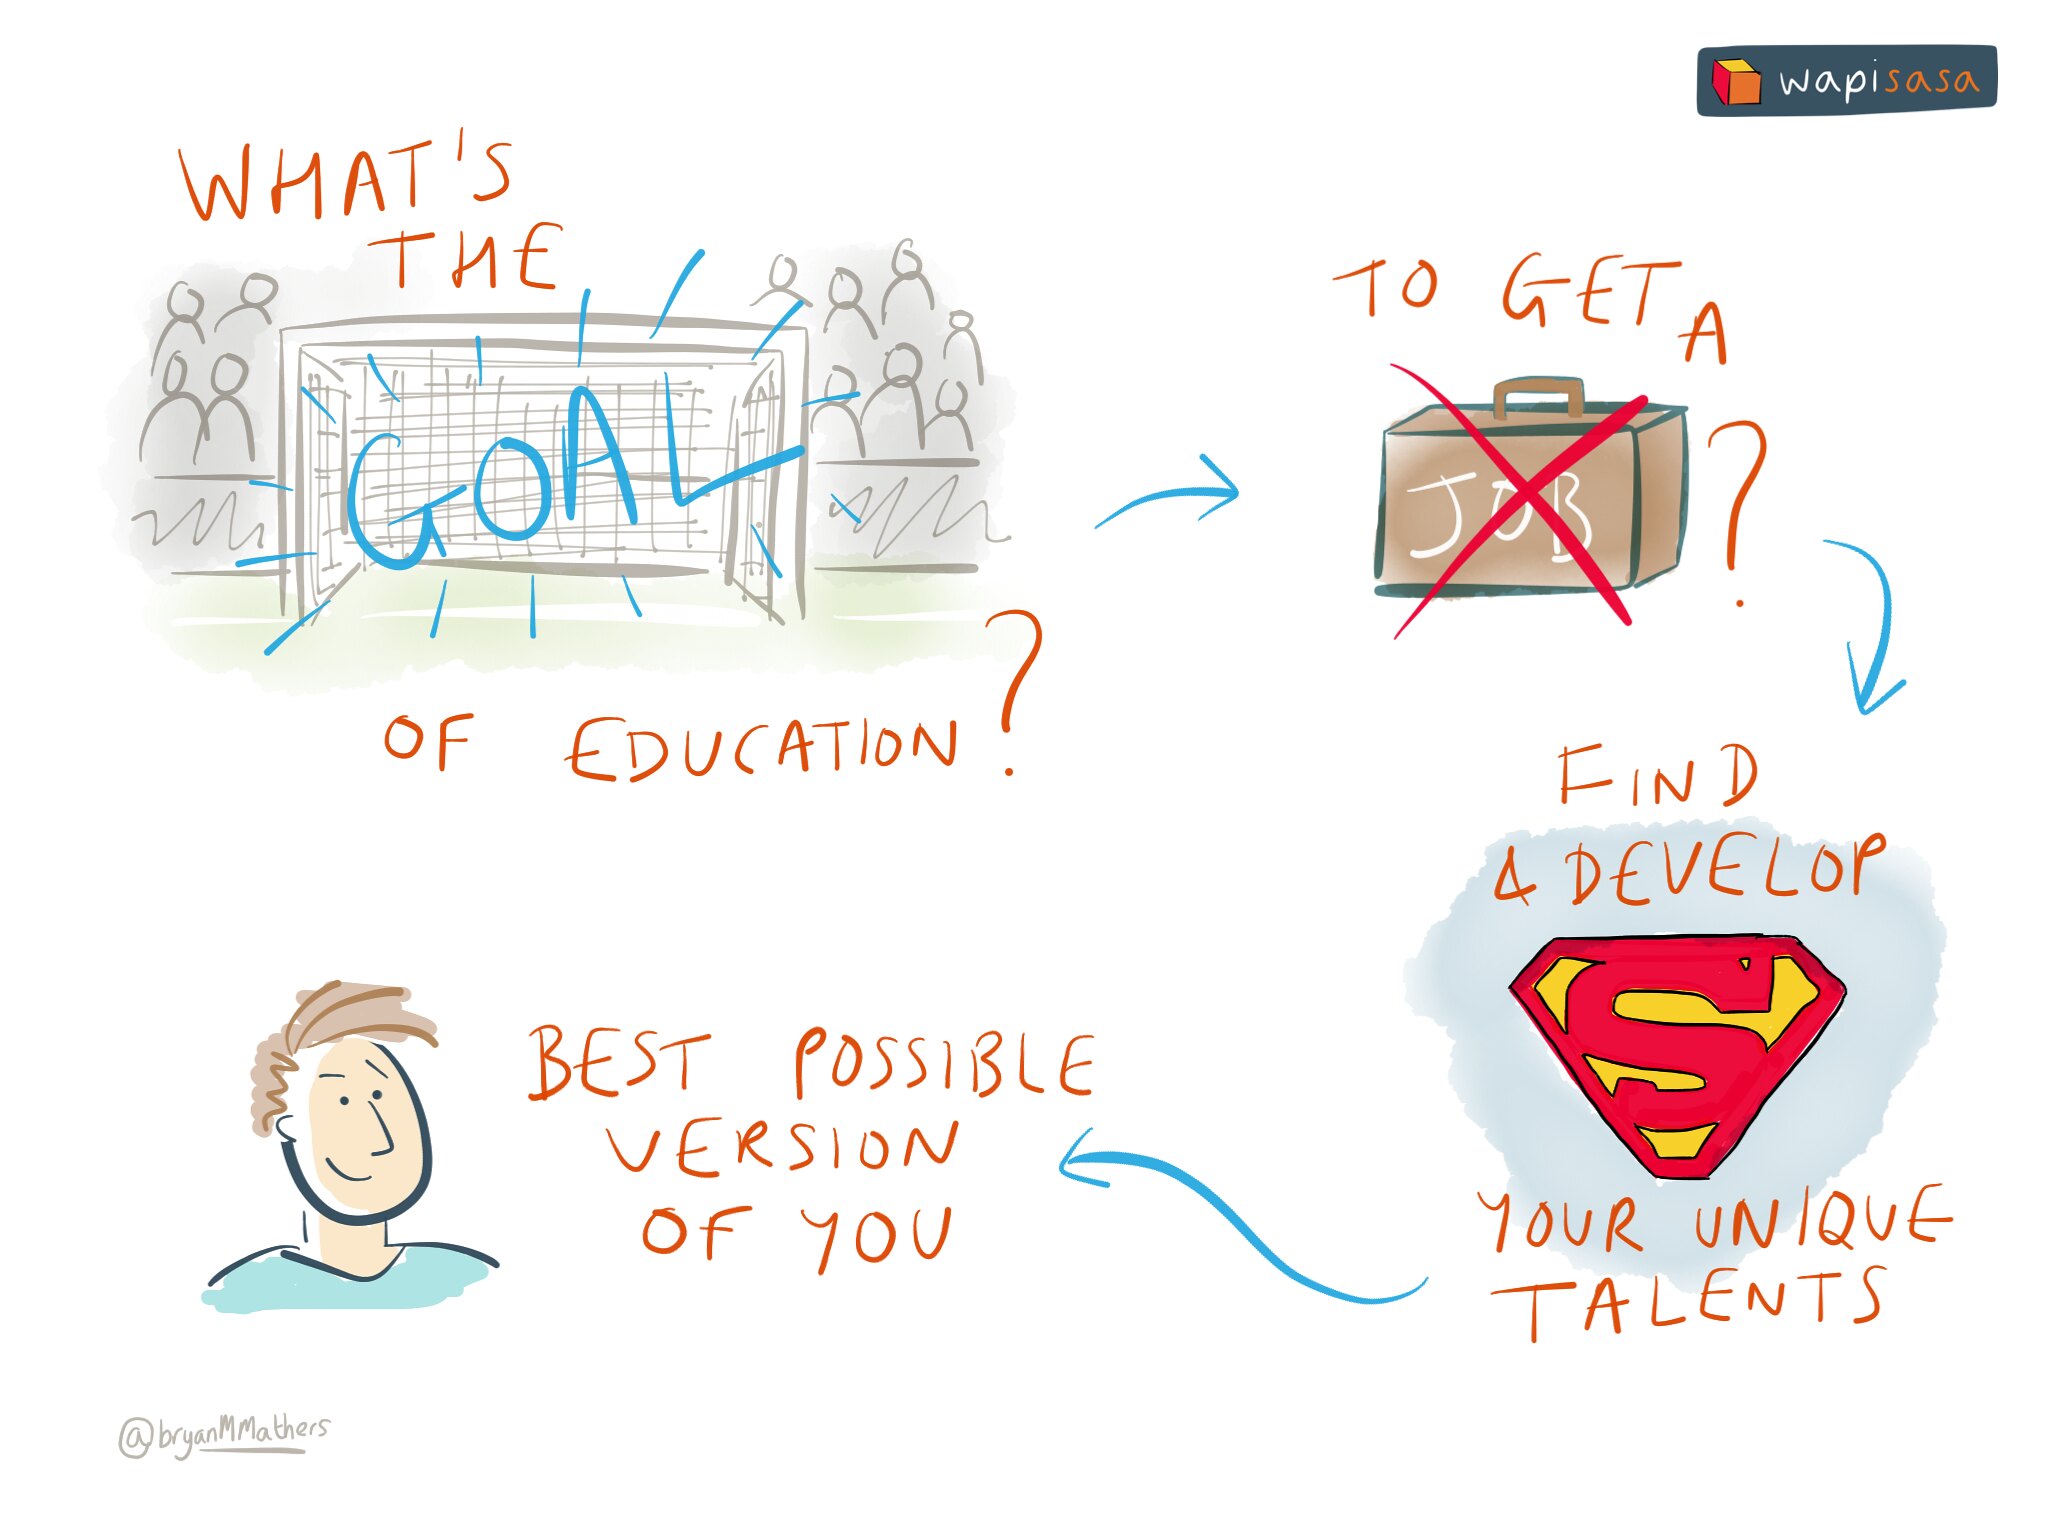 wapisasa
WHAT'S
THE
GOAL
OF EDUCATION?
TO GET A
JOB ?
FIND
& DEVELOP
S
YOUR UNIQUE
TALENTS
BEST POSSIBLE
VERSION
OF YOU
@bryanMMathers